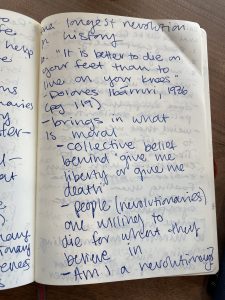 longest revolution
in history
"It is better to die on
your feet than to
live on your knees"
- Dolores Ibarruri, 1936
(pg 119)
- brings in what
is moral
- collective belief
behind "give me
liberty or give me
death"
- people [revolutionaries]
are willing to
die for what they
believe in
- Am I a revolutionary?